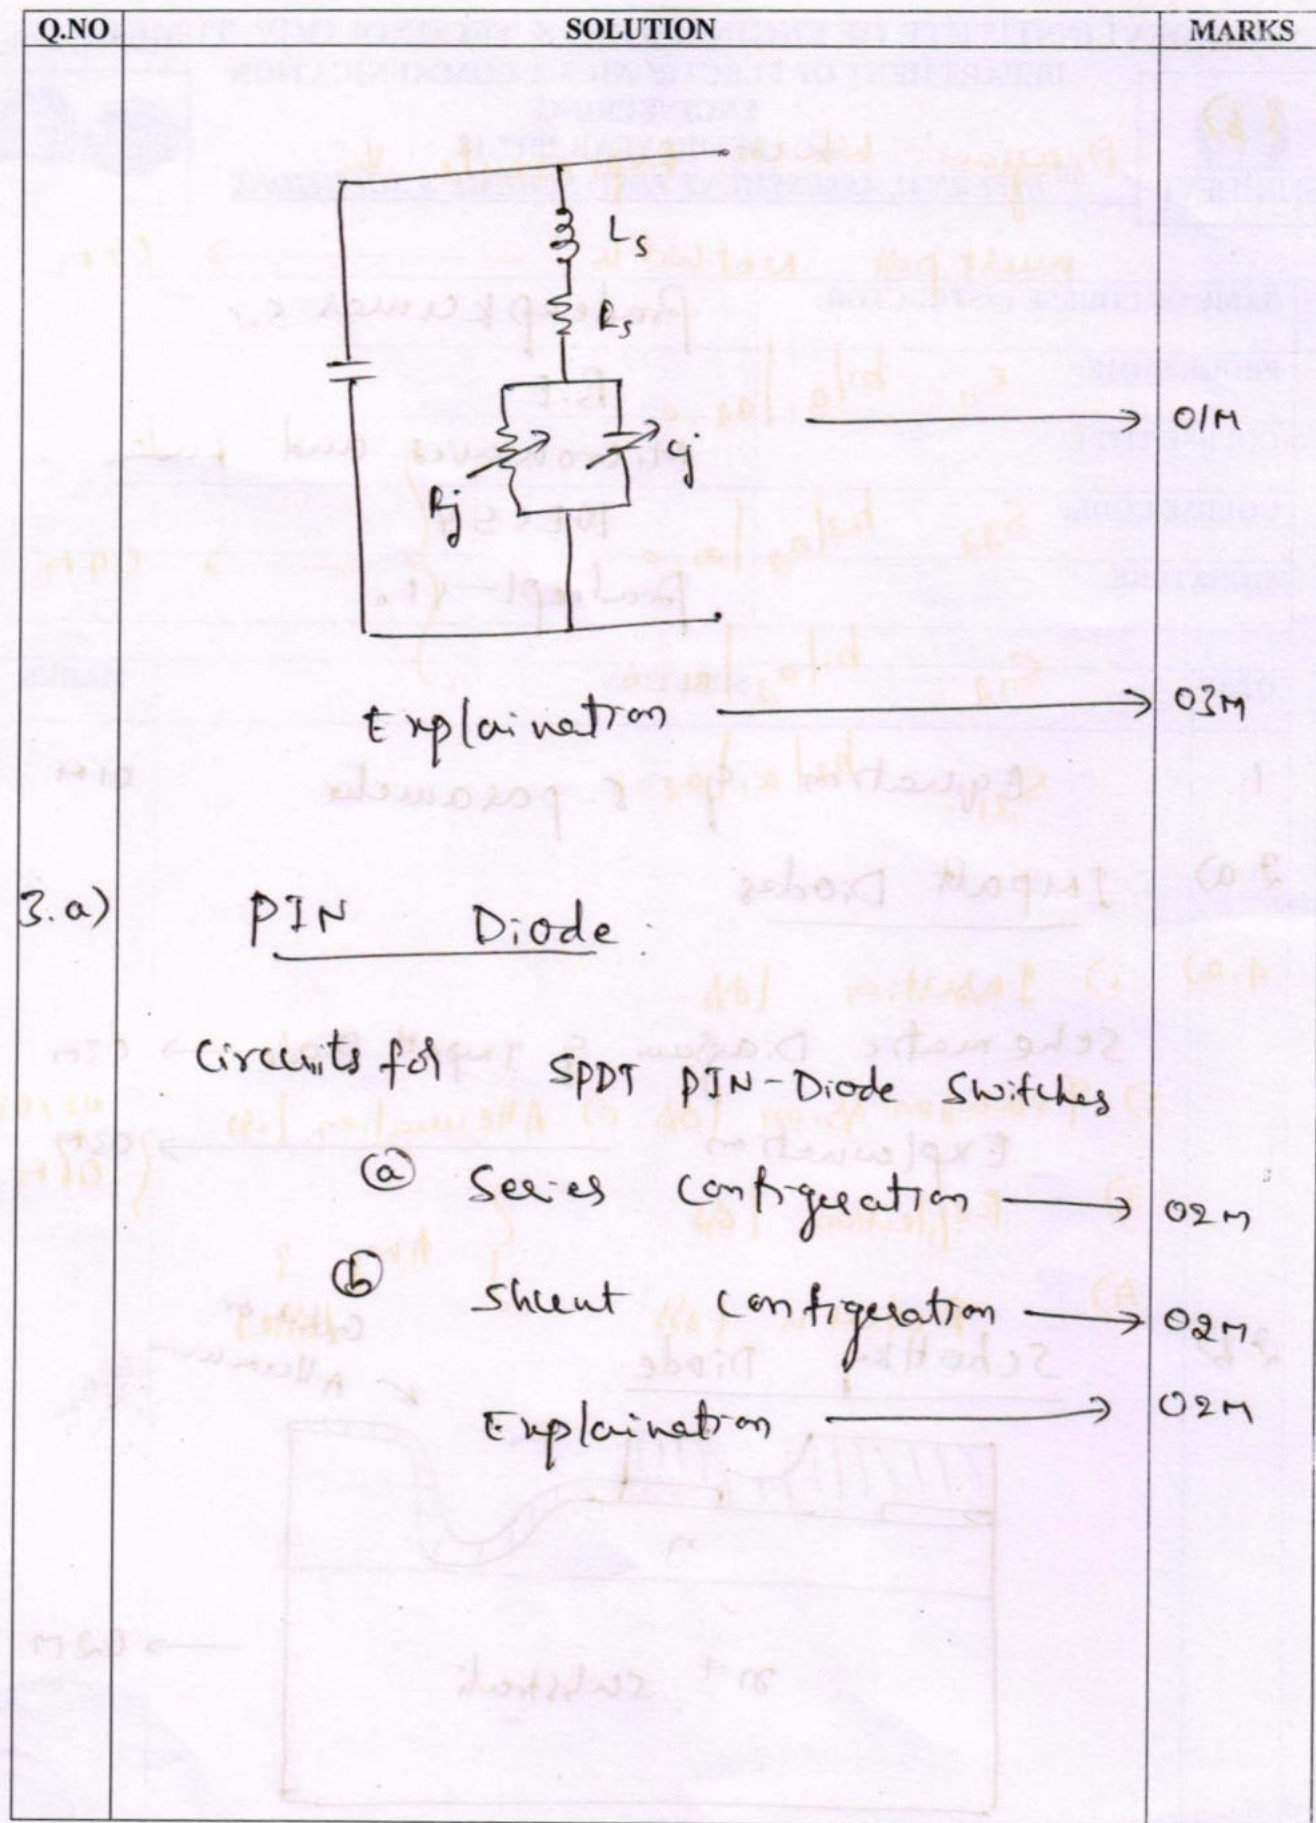 Q.NO SOLUTION MARKS
Ls
Rs
Rj Cj
→ 01M
Explaination → 03M
3.a) PIN Diode.
Circuits for SPDT PIN-Diode Switches
ⓐ Series configuration → 02M
ⓑ Shunt configuration → 02M
Explaination → 02M